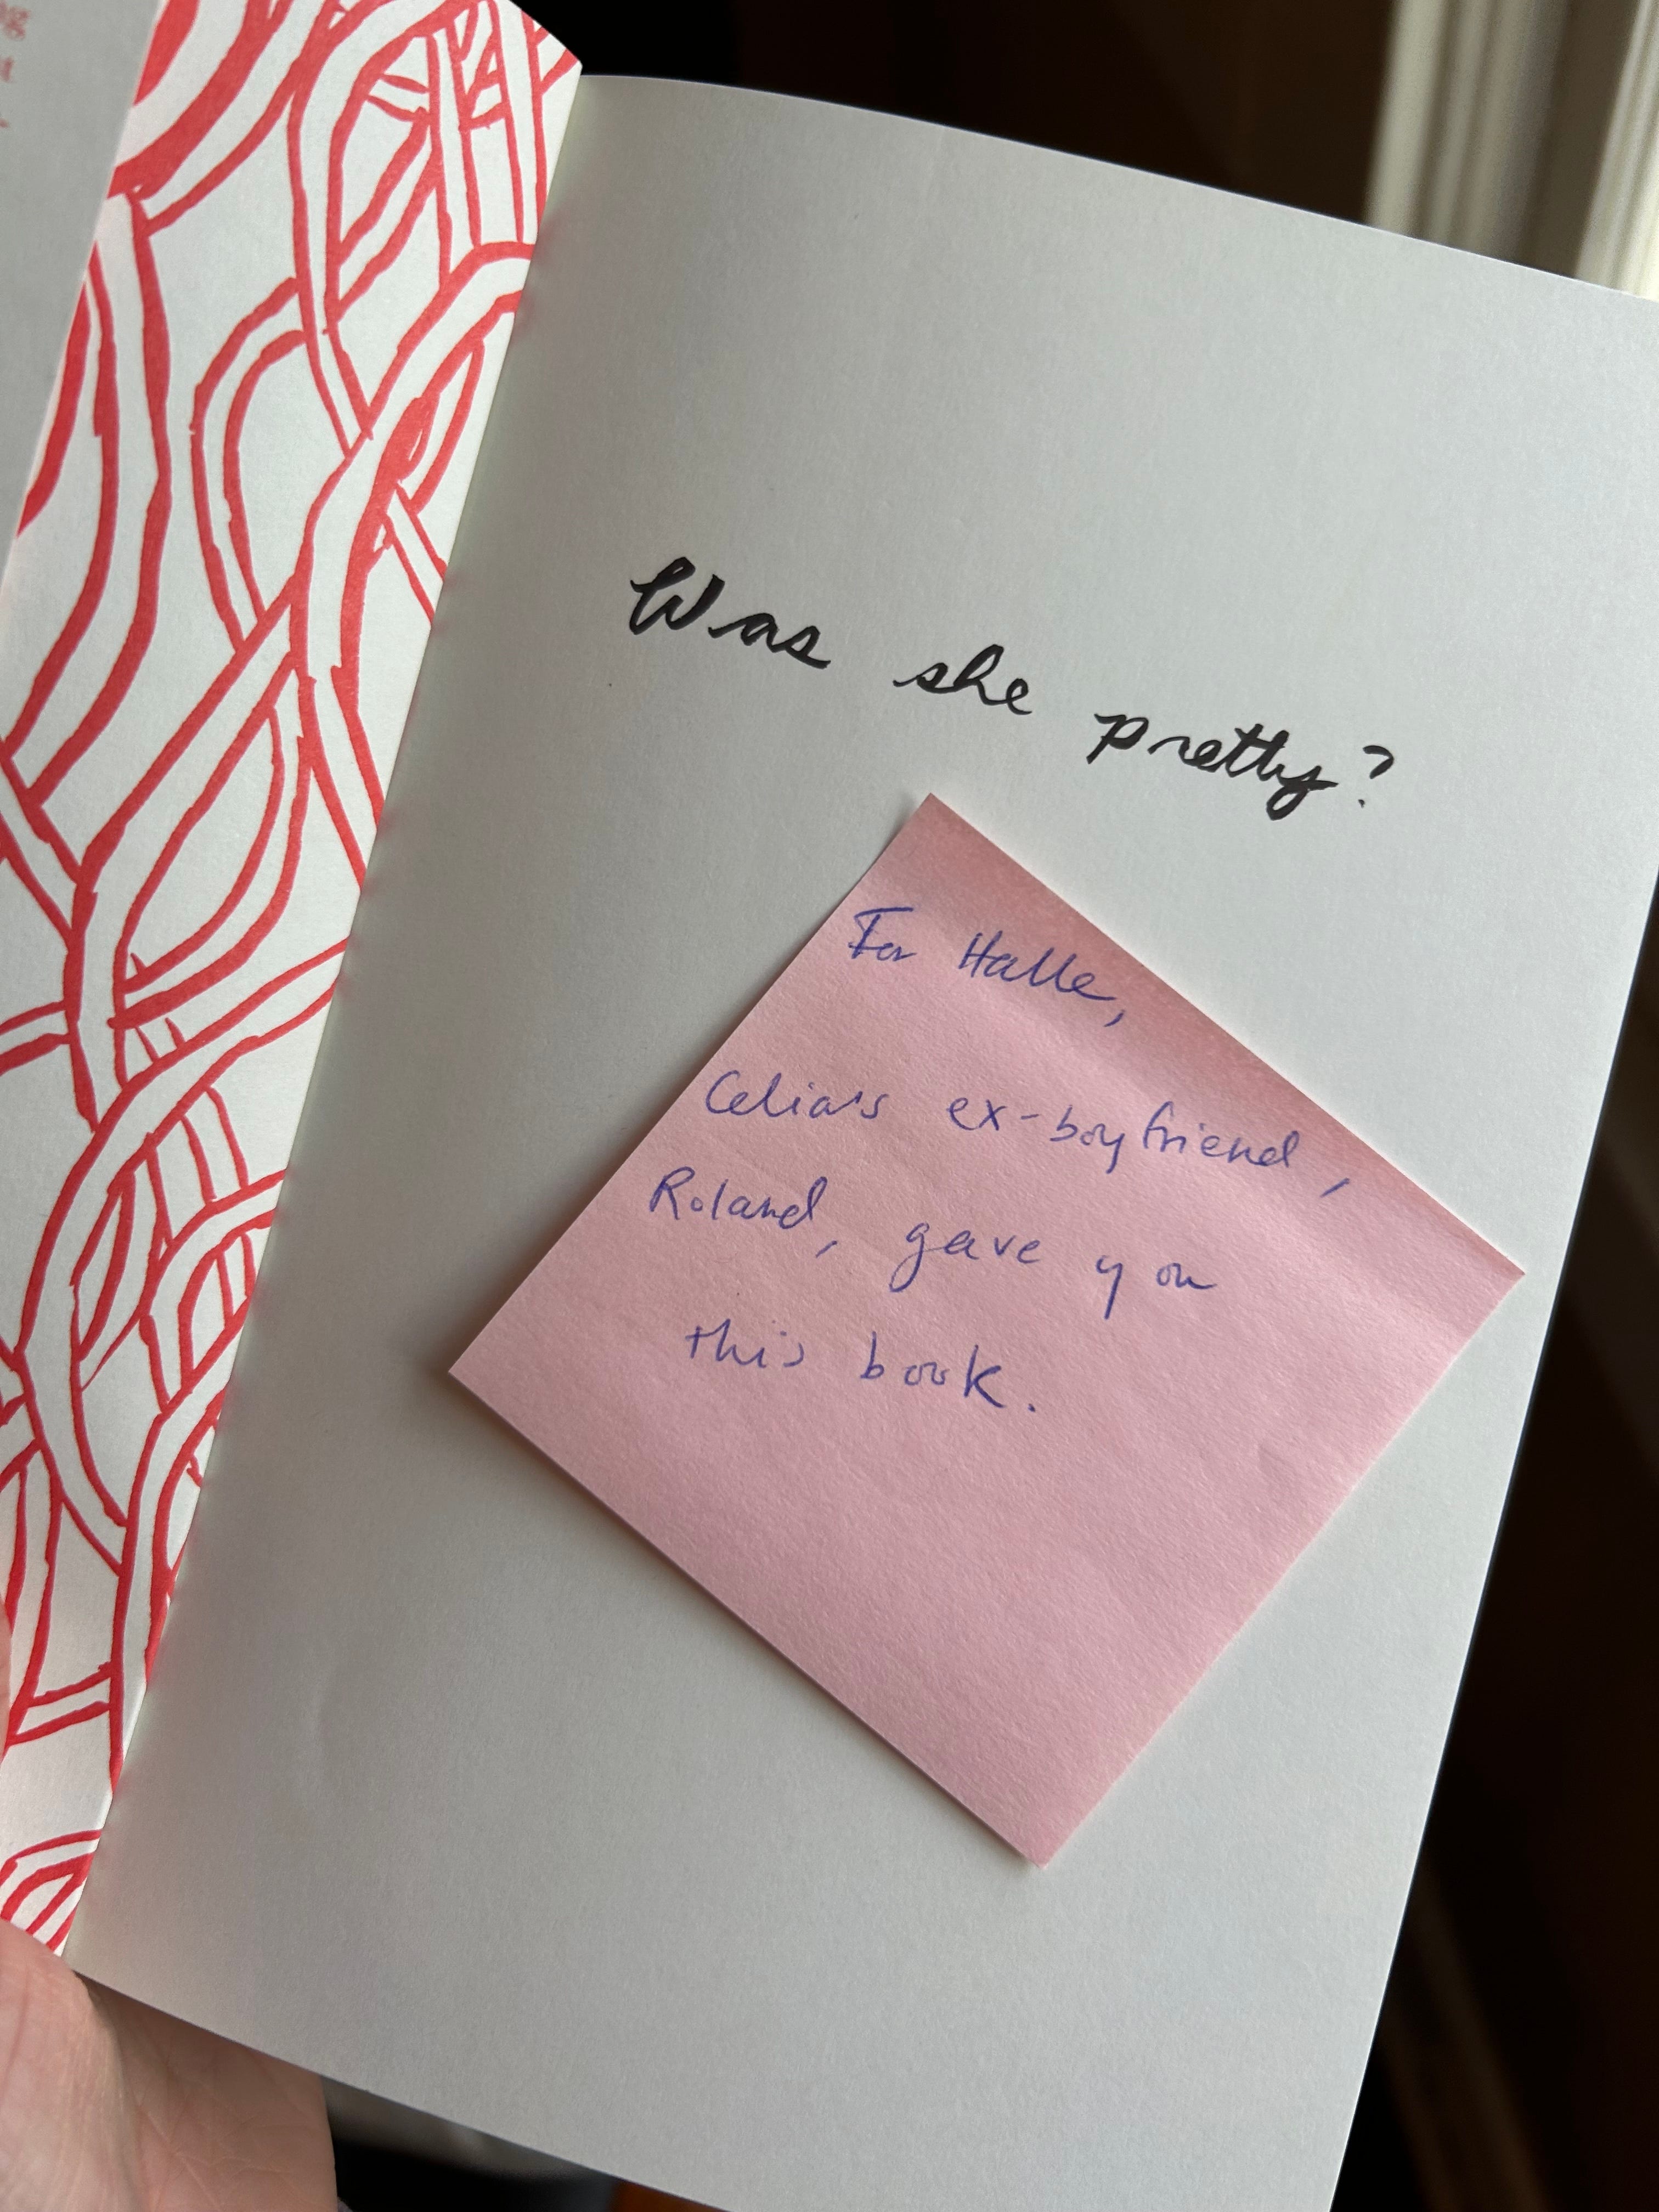 Was she pretty?
For Halle,
Celia's ex-boyfriend,
Roland, gave you
this book.